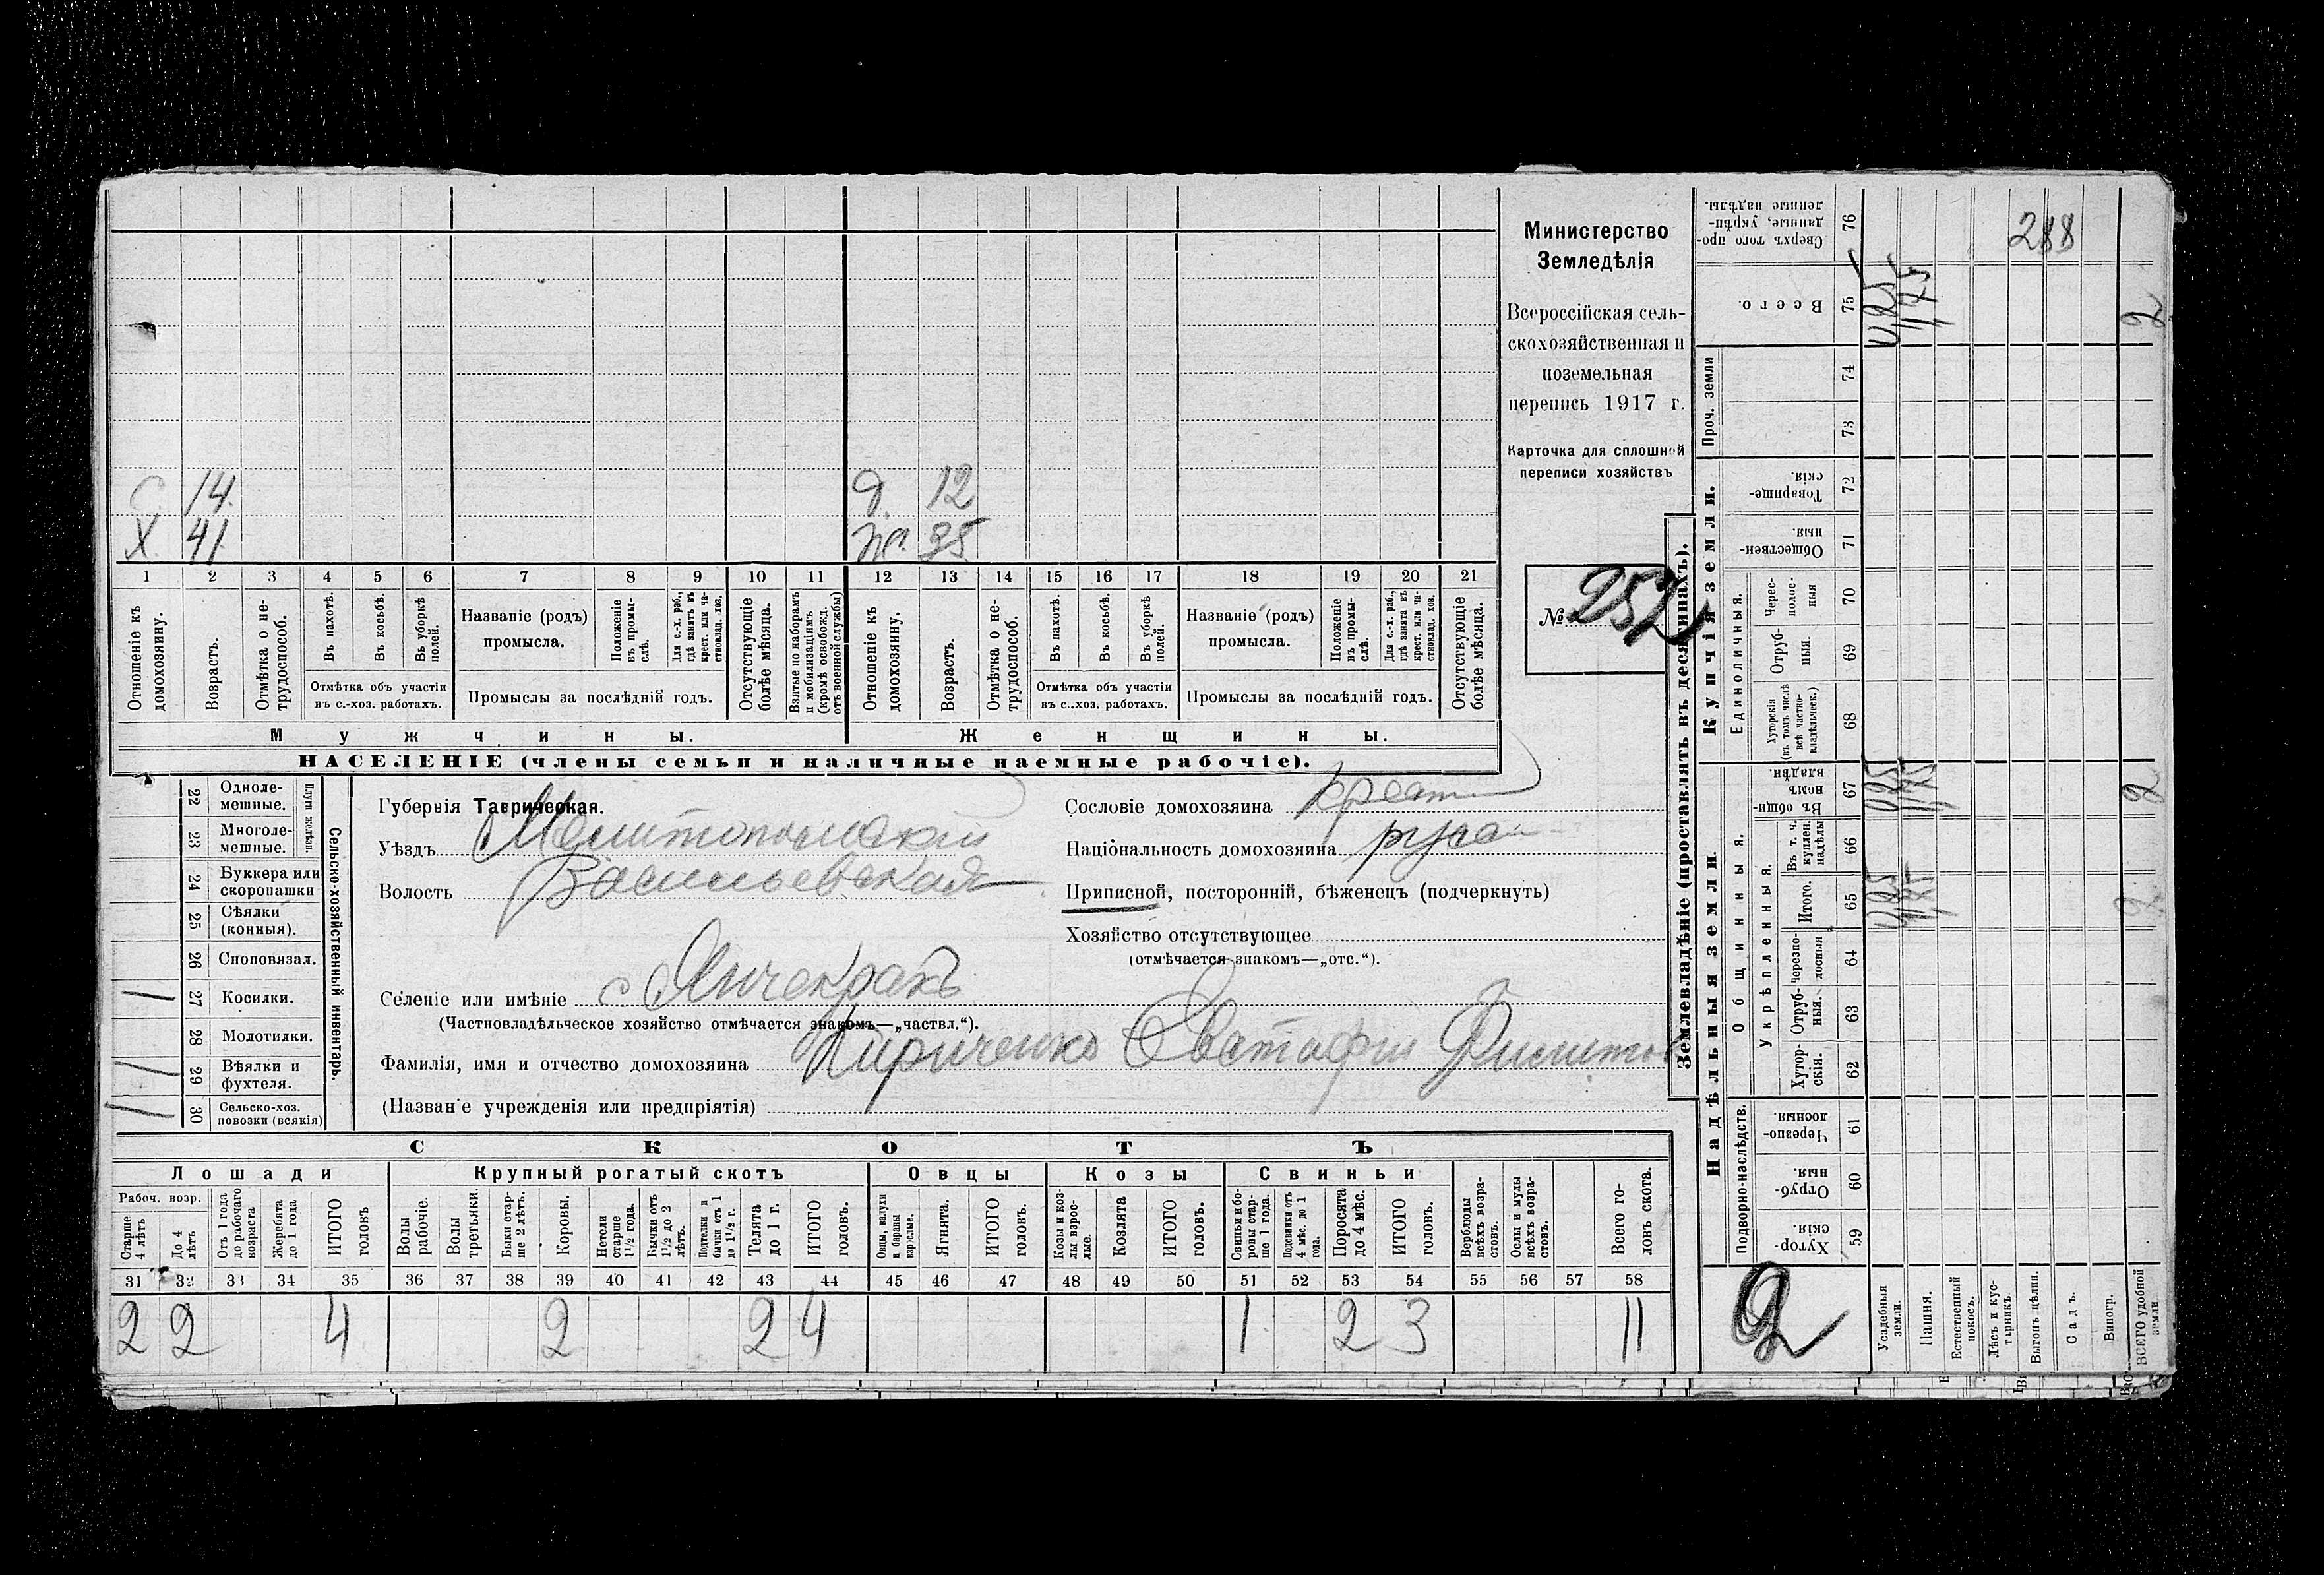 С 14. д. 12
Х. 41. ж. 35
1 2 3 4 5 6 7 8 9 10 11 12 13 14 15 16 17 18 19 20 21
Отношеніе къ домохозяину.
Возрастъ.
Отмѣтка о не-трудоспособ.
Въ пахотѣ.
Въ косьбѣ.
Въ уборкѣ полей.
Отмѣтка объ участіи
въ с.-хоз. работахъ.
Названіе (родъ)
промысла.
Положеніе въ промы-слѣ.
Для с.-х. раб., гдѣ занятъ въ крест. или ча-стновлад. хоз.
Промыслы за послѣдній годъ.
Отсутствующіе болѣе мѣсяца.
Взятые по наборамъ и мобилизаціямъ (кромѣ освобожд. отъ военной службы)
Отношеніе къ домохозяину.
Возрастъ.
Отмѣтка о не-трудоспособ.
Въ пахотѣ.
Въ косьбѣ.
Въ уборкѣ полей.
Отмѣтка объ участіи
въ с.-хоз. работахъ.
Названіе (родъ)
промысла.
Положеніе въ промы-слѣ.
Для с.-х. раб., гдѣ занята въ крест. или ча-стновлад. хоз.
Промыслы за послѣдній годъ.
Отсутствующіе болѣе мѣсяца.
Мужчины. Женщины.
НАСЕЛЕНІЕ (члены семьи и наличные наемные рабочіе).
Министерство
Земледѣлія
Всероссійская сель-
скохозяйственная и
поземельная
перепись 1917 г.
Карточка для сплошной
переписи хозяйствъ
№ 257
Сельско-хозяйственный инвентарь.
Плуги желѣзн.
22 Одноле-мешные.
23 Многоле-мешные.
24 Буккера или скоропашки
25 Сѣялки (конныя).
26 Сноповязал.
1 27 Косилки.
28 Молотилки.
1 29 Вѣялки и фухтеля.
30 Сельско-хоз. повозки (всякія)
Губернія Таврическая.
Уѣздъ Мелитопольскій
Волость Васильевская
Селеніе или имѣніе с Янчекракъ
(Частновладѣльческое хозяйство отмѣчается знакомъ—„частвл.“).
Фамилія, имя и отчество домохозяина Кириченко Евстафій Филипов
(Названіе учрежденія или предпріятія)
Сословіе домохозяина крест
Національность домохозяина русс
Приписной, посторонній, бѣженецъ (подчеркнуть)
Хозяйство отсутствующее
(отмѣчается знакомъ—„отс.“).
СКОТЪ
Лошади Крупный рогатый скотъ Овцы Козы Свиньи
Рабоч. возр.
Старше 4 лѣтъ
До 4 лѣтъ
Отъ 1 года до рабочаго возраста
Жеребята до 1 года
ИТОГО головъ
Волы рабочіе.
Волы третьяки.
Быки стар-ше 2 лѣтъ.
Коровы.
Нетели старше 1½ года.
Бычки отъ 1½ до 2 лѣтъ.
Подтелки и бычки отъ 1 до 1½ г.
Телята до 1 г.
ИТОГО головъ.
Овцы, валухи и бараны взрослые.
Ягнята.
ИТОГО головъ.
Козы и коз-лы взрос-лые.
Козлята
ИТОГО головъ.
Свиньи и бо-ровы стар-ше 1 года.
Подсвинки отъ 4 мѣс. до 1 года.
Поросята до 4 мѣс.
ИТОГО головъ.
Верблюды всѣхъ возра-стовъ.
Ослы и мулы всѣхъ возра-стовъ.
Всего го-ловъ скота.
31 32 33 34 35 36 37 38 39 40 41 42 43 44 45 46 47 48 49 50 51 52 53 54 55 56 57 58
2 2 4 2 2 4 1 2 3 11
Землевладѣніе (проставлять въ десятинахъ).
Купчія земли.
Надѣльныя земли.
Проч. земли
Сверхъ того про-данные, укрѣп-ленные надѣлы.
76
288
Всего.
75
2
74
73
Товарище-скія.
72
Обществен-ныя.
71
Единоличныя.
Черес-полос-ныя
70
Отруб-ныя.
69
Хуторскія (въ томъ числѣ всѣ частно-владѣльческ.)
68
Общинныя.
Въ общи-номъ владѣн.
67
2
Укрѣпленныя.
Въ т. ч. куплен. надѣлы
66
Итого.
65
2
Черезпо-лосныя
64
Отруб-ныя.
63
Хутор-скія.
62
Подворно-наслѣдств.
Черезпо-лосныя.
61
Отруб-ныя.
60
Хутор-скія.
59
2
Усадебныя земли.
Пашня.
Естественный покосъ.
Лѣсъ и кус-тарникъ
Выгонъ цѣлин.
Садъ.
Виногр.
ВСЕГО удобной земли